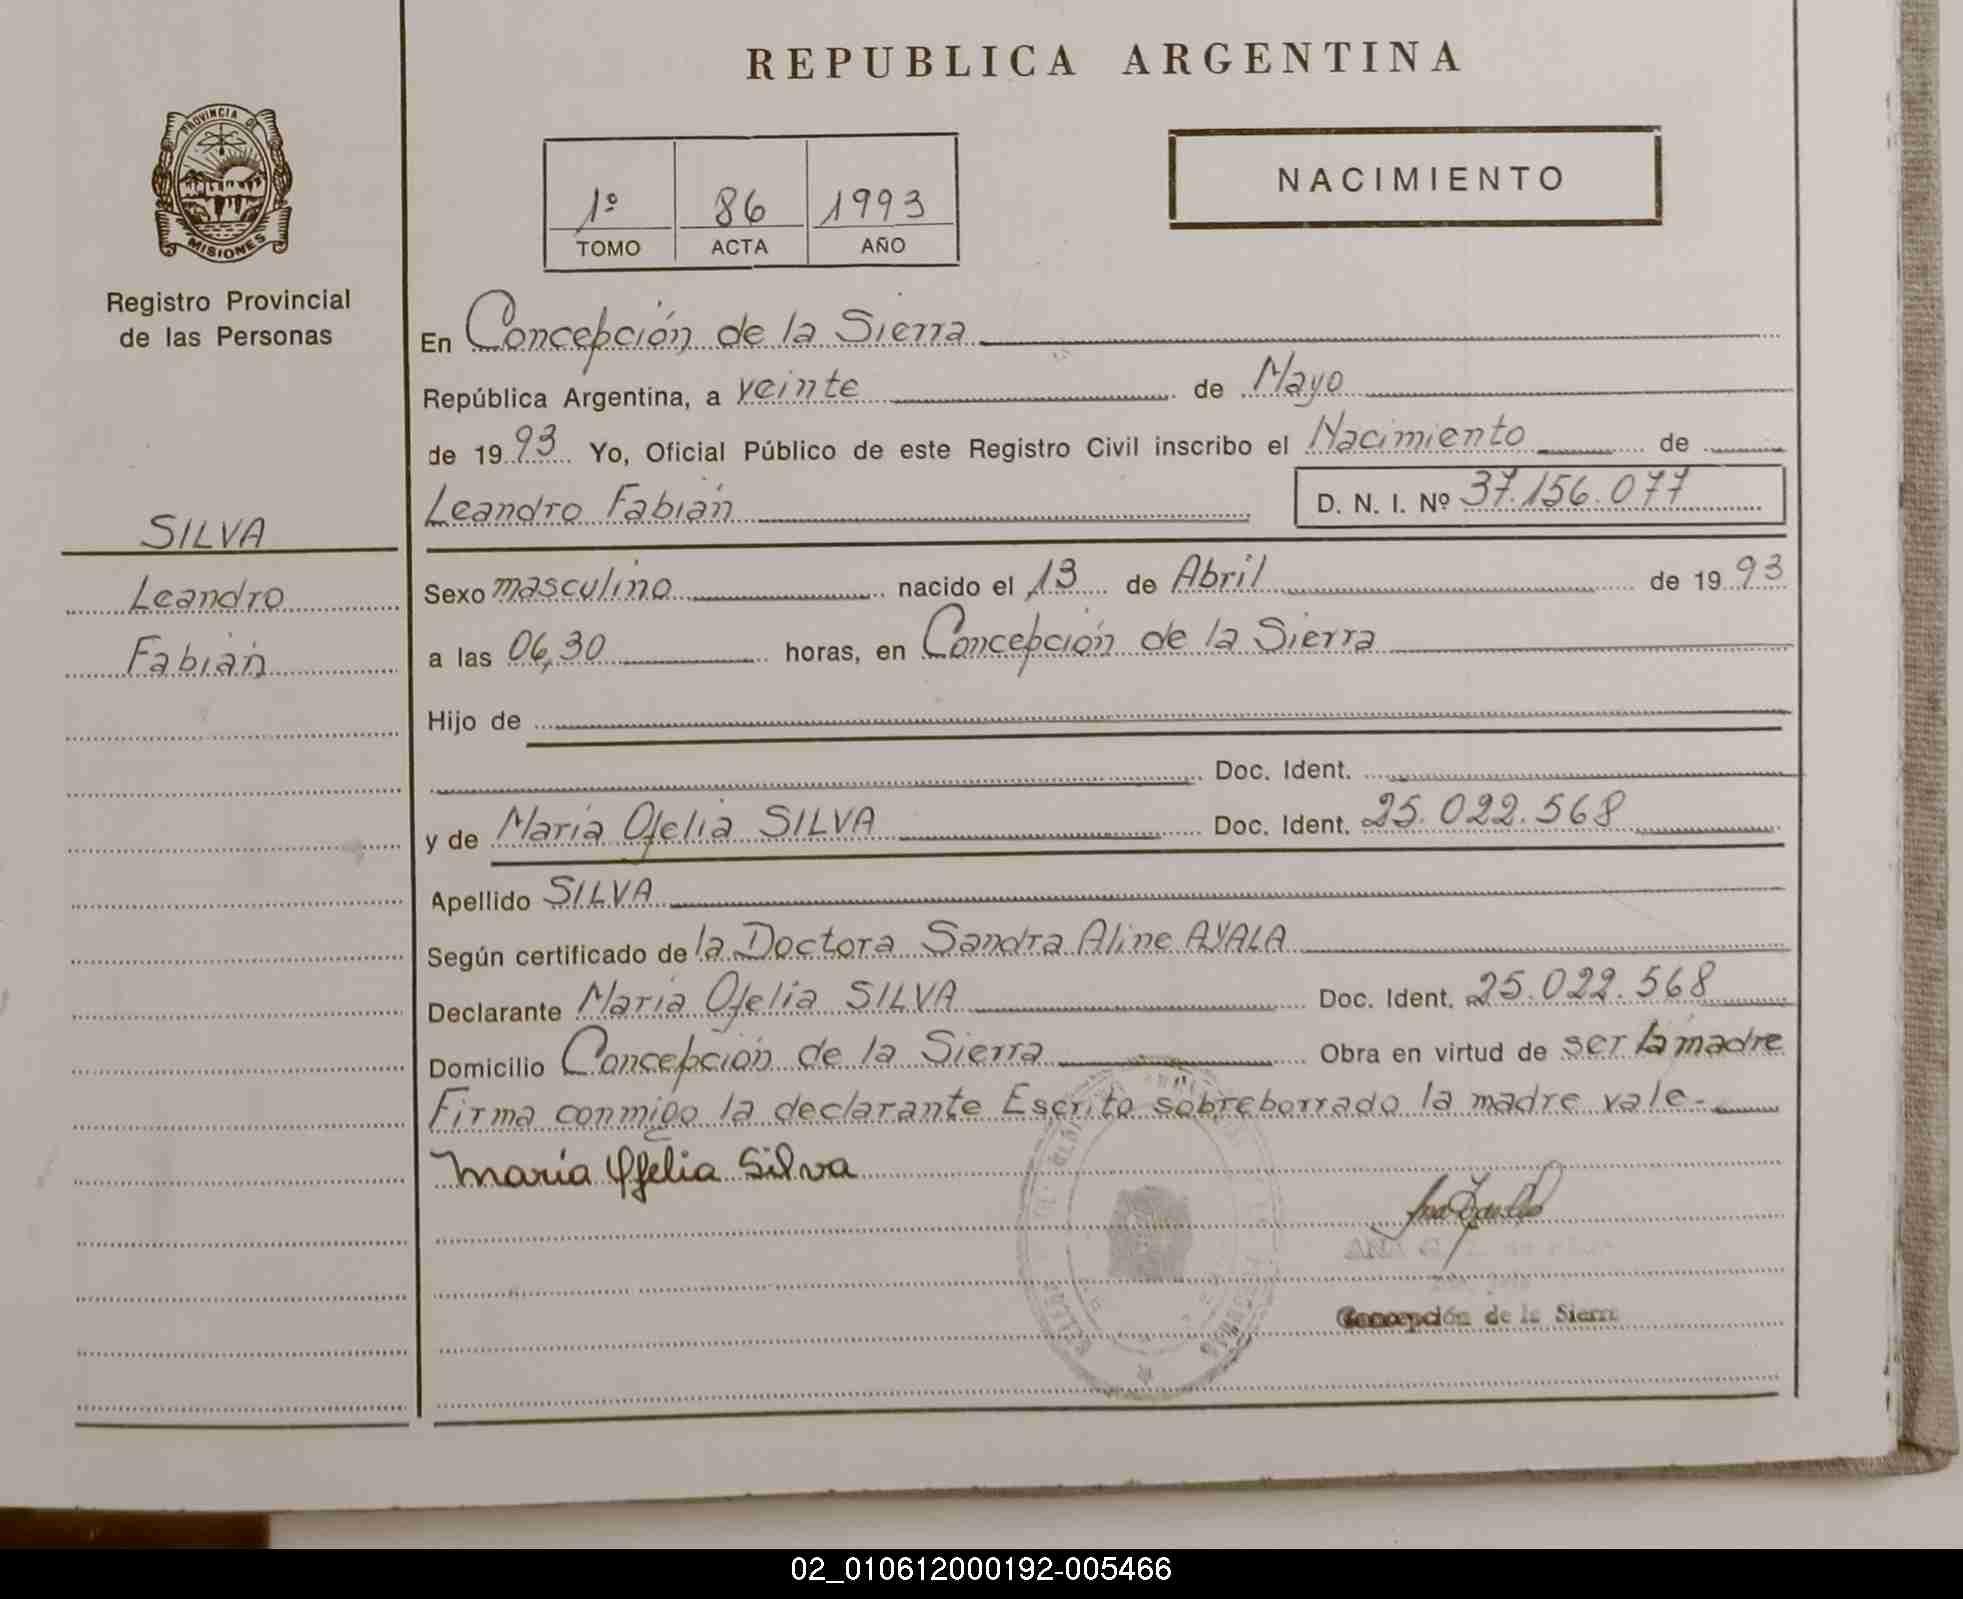 REPUBLICA ARGENTINA
PROVINCIA DE
MISIONES
Registro Provincial
de las Personas
1º 86 1993
TOMO ACTA AÑO
NACIMIENTO
En Concepción de la Sierra
República Argentina, a veinte de Mayo
de 1993 Yo, Oficial Público de este Registro Civil inscribo el Nacimiento de
Leandro Fabián D. N. I. Nº 37.156.077
SILVA
Leandro
Fabián
Sexo masculino nacido el 13 de Abril de 1993
a las 06,30 horas, en Concepción de la Sierra
Hijo de
Doc. Ident.
y de María Ofelia SILVA Doc. Ident. 25.022.568
Apellido SILVA
Según certificado de la Doctora Sandra Aline AYALA
Declarante María Ofelia SILVA Doc. Ident. 25.022.568
Domicilio Concepción de la Sierra Obra en virtud de ser la madre
Firma conmigo la declarante Escrito sobreborrado la madre vale.-
María Ofelia Silva
Concepción de la Sierra
02_010612000192-005466